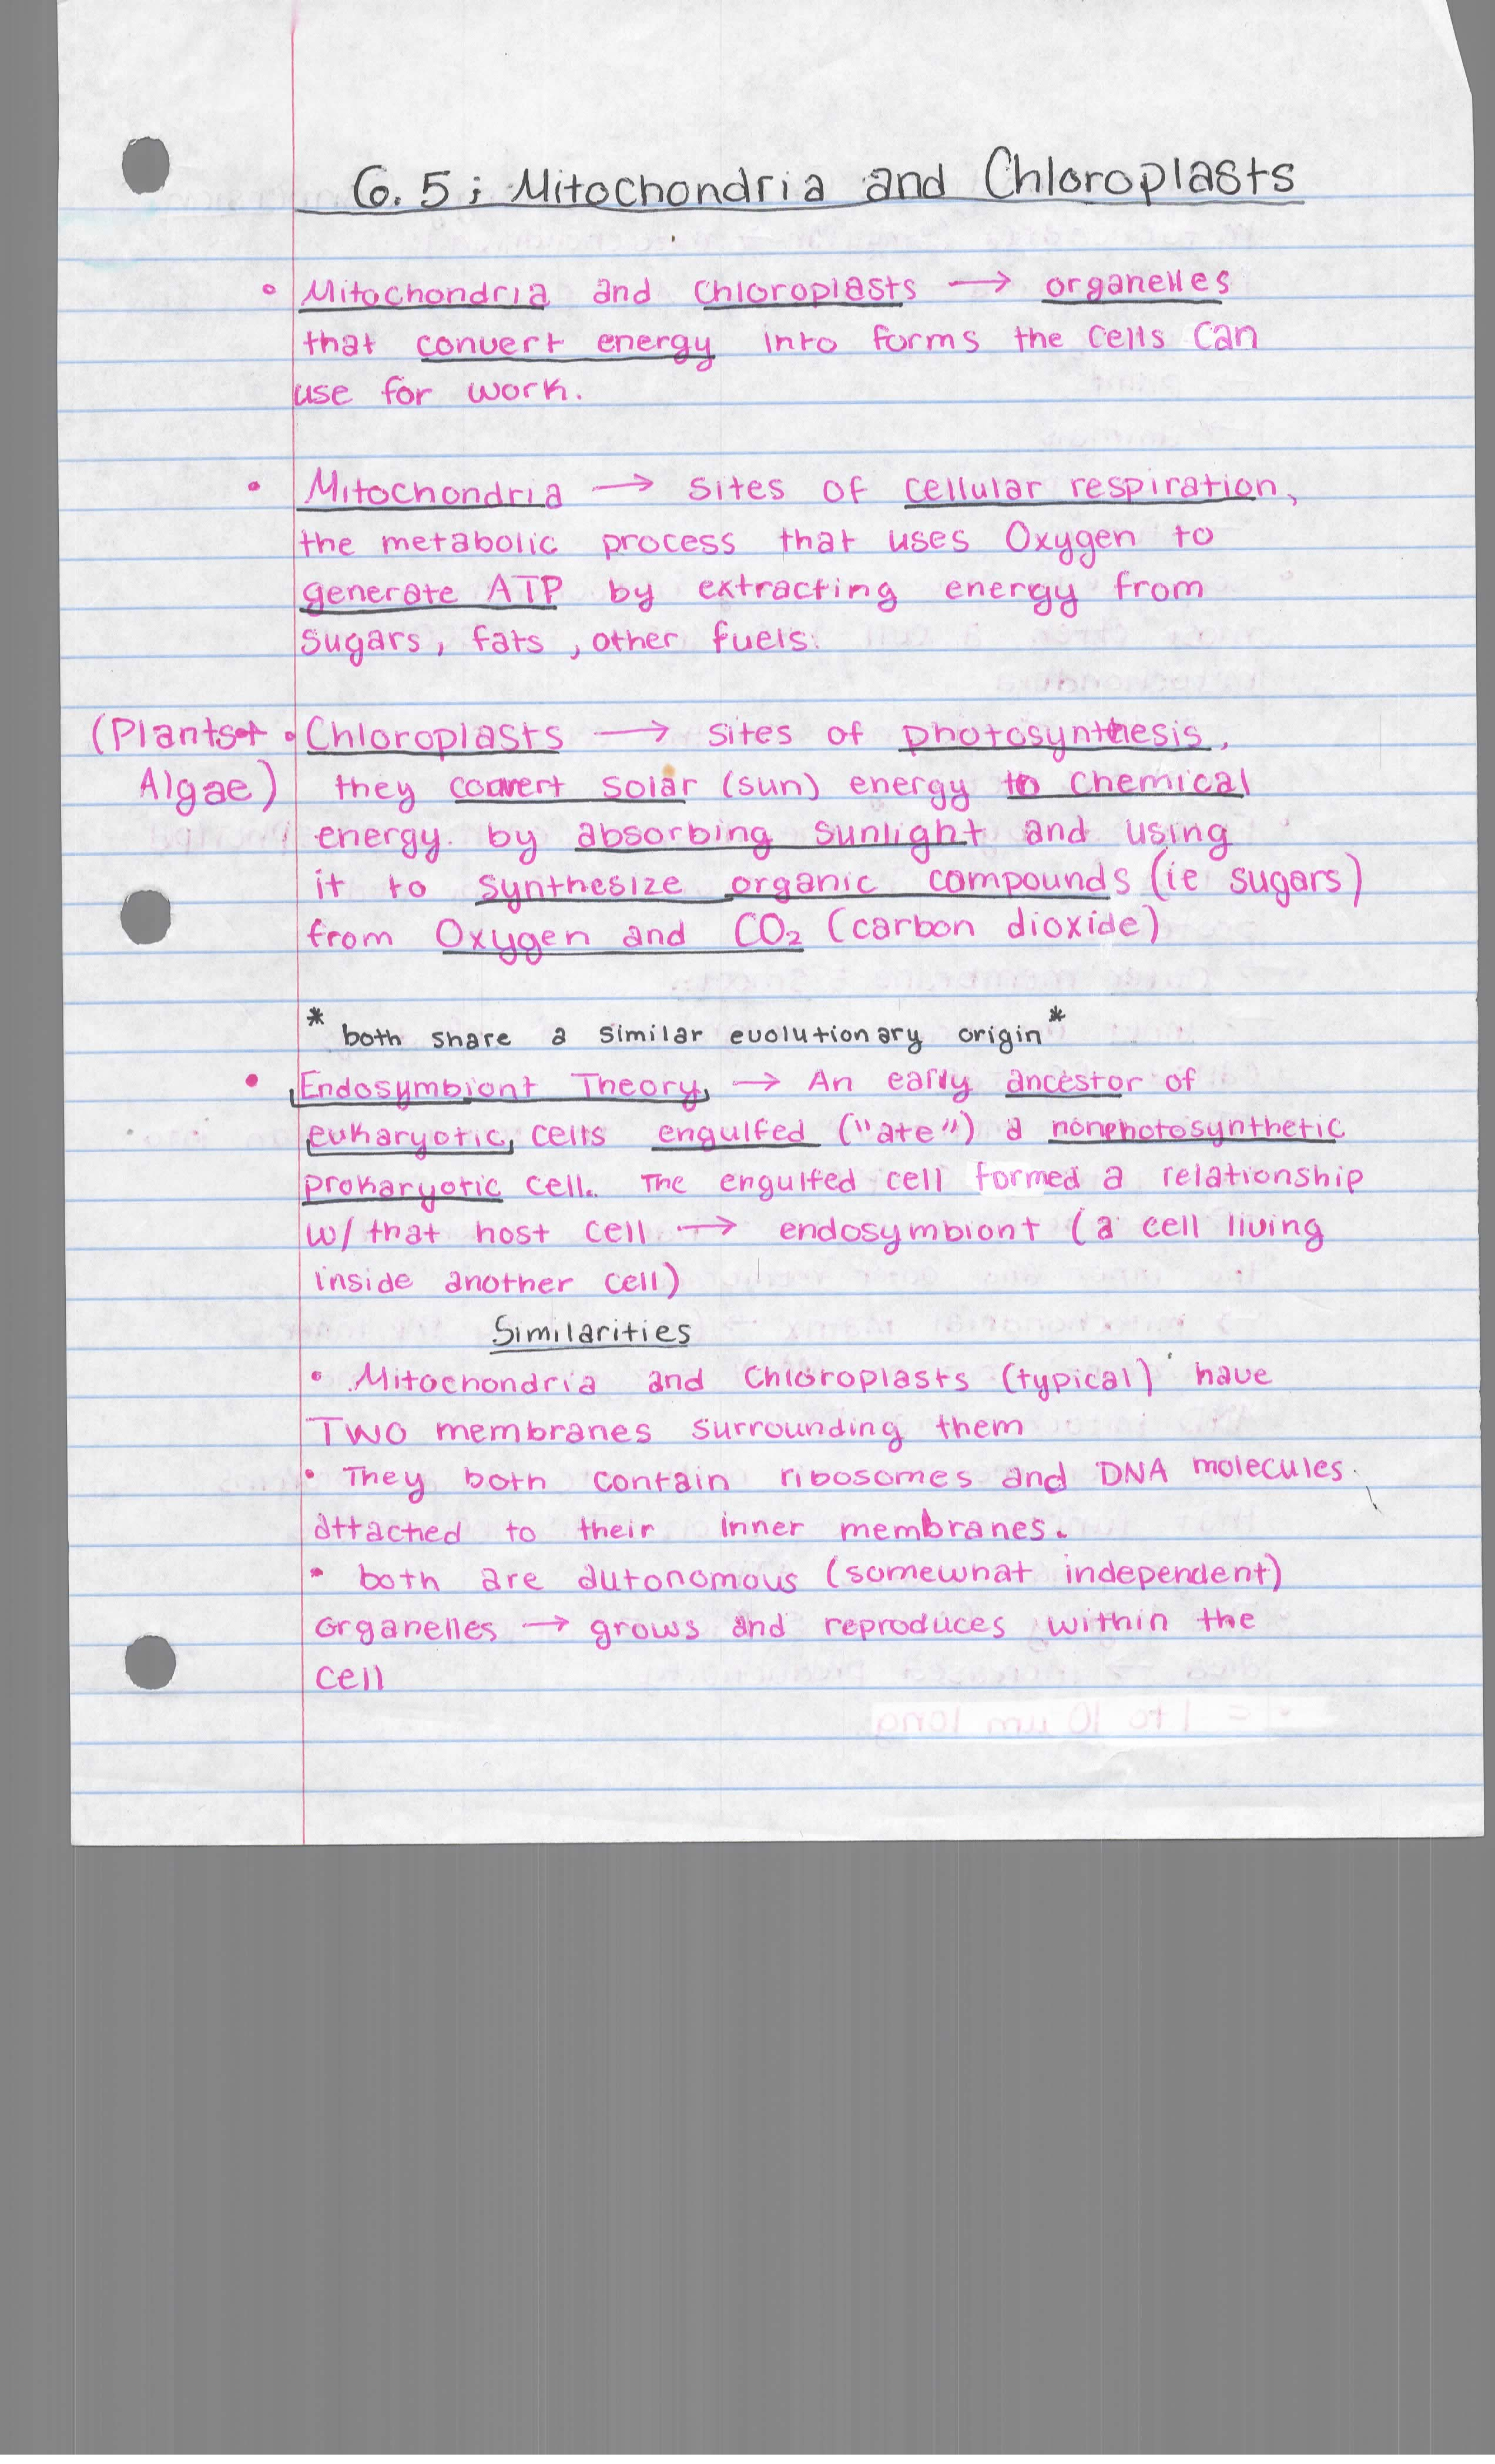 6.5: Mitochondria and Chloroplasts
• Mitochondria and Chloroplasts → organelles
that convert energy into forms the cells can
use for work.
• Mitochondria → sites of cellular respiration,
the metabolic process that uses Oxygen to
generate ATP by extracting energy from
sugars, fats, other fuels.
(Plants + • Chloroplasts → sites of photosynthesis,
Algae) they convert solar (sun) energy to chemical
energy by absorbing sunlight and using
it to synthesize organic compounds (ie sugars)
from Oxygen and CO₂ (carbon dioxide)
* both share a similar evolutionary origin *
• Endosymbiont Theory → An early ancestor of
eukaryotic cells engulfed ("ate") a nonphotosynthetic
prokaryotic cell. The engulfed cell formed a relationship
w/ that host cell → endosymbiont (a cell living
inside another cell)
Similarities
• Mitochondria and Chloroplasts (typical) have
TWO membranes surrounding them
• They both contain ribosomes and DNA molecules
attached to their inner membranes.
• both are autonomous (somewhat independent)
organelles → grows and reproduces within the
cell